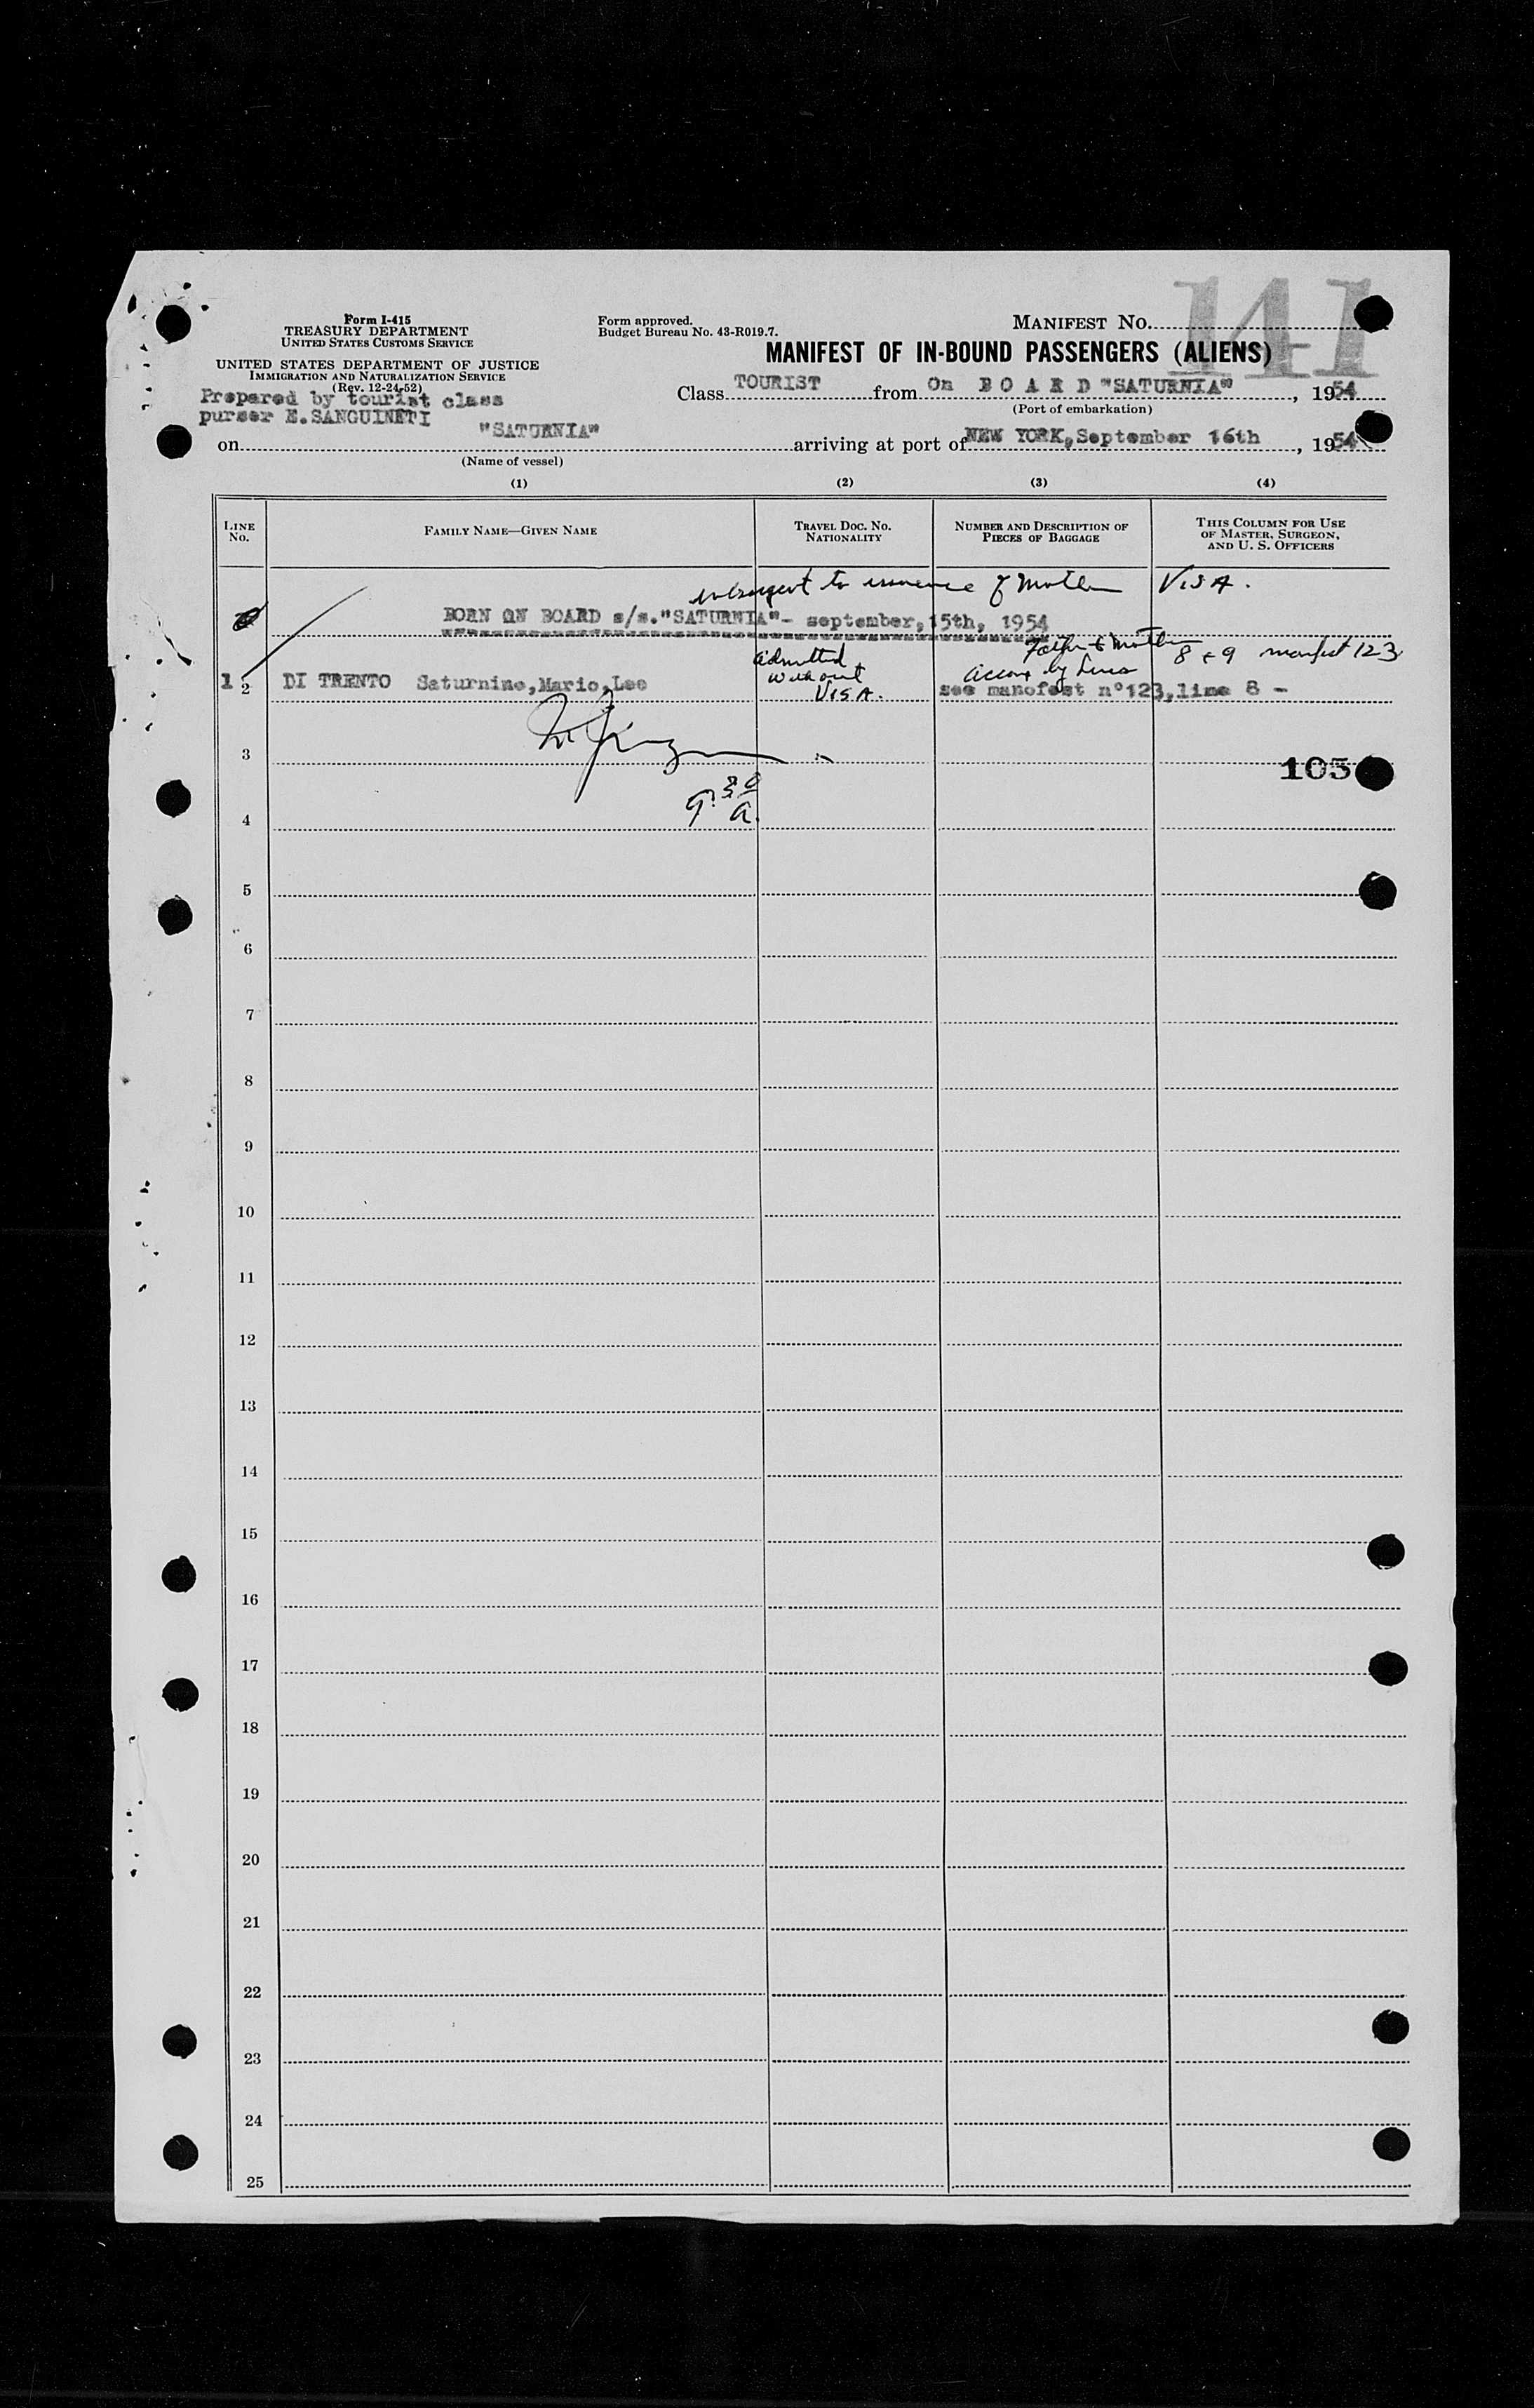 141
Form I-415
TREASURY DEPARTMENT
UNITED STATES CUSTOMS SERVICE
UNITED STATES DEPARTMENT OF JUSTICE
IMMIGRATION AND NATURALIZATION SERVICE
(Rev. 12-24-52)
Form approved.
Budget Bureau No. 43-R019.7.
MANIFEST NO.
MANIFEST OF IN-BOUND PASSENGERS (ALIENS)
Prepared by tourist class
purser E.SANGUINETI
Class TOURIST from On B O A R D "SATURNIA", 1954
(Port of embarkation)
on "SATURNIA" arriving at port of NEW YORK, September 16th, 1954
(Name of vessel)
(1) (2) (3) (4)
LINE NO.
FAMILY NAME—GIVEN NAME
TRAVEL DOC. NO.
NATIONALITY
NUMBER AND DESCRIPTION OF
PIECES OF BAGGAGE
THIS COLUMN FOR USE
OF MASTER, SURGEON,
AND U. S. OFFICERS
to issuance of mother VISA.
BORN ON BOARD s/s."SATURNIA"- september,15th, 1954
Father & Mother
8 & 9 manifest 123
admitted
without
VISA.
accom by
1 2 DI TRENTO Saturnino,Mario,Leo see manofest n°123,line 8 -
3
105
9:30
a.
4
5
6
7
8
9
10
11
12
13
14
15
16
17
18
19
20
21
22
23
24
25